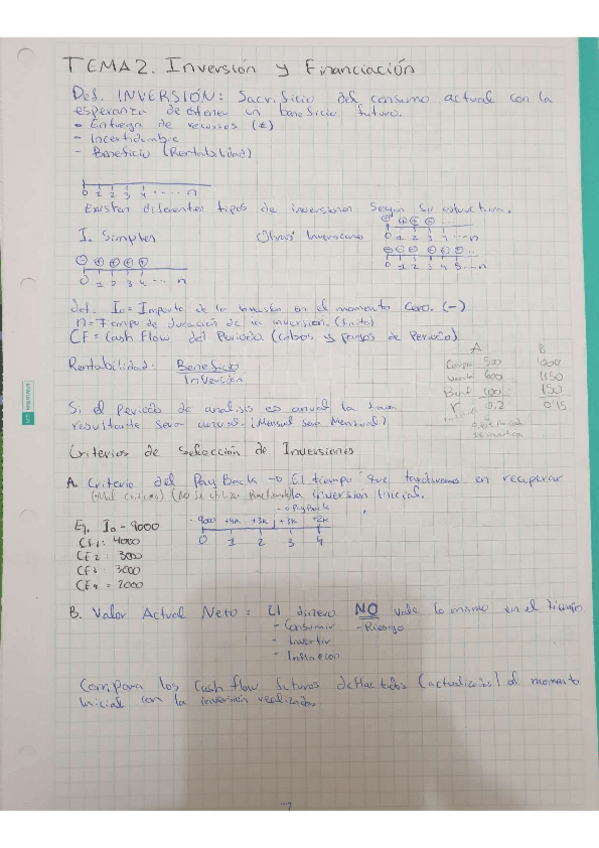 TEMA 2. Inversión y Financiación
Def. INVERSIÓN: Sacrificio del consumo actual con la
esperanza de obtener un beneficio futuro.
- Entrega de recursos (€)
- Incertidumbre
- Beneficio (Rentabilidad)
0 1 2 3 4 .... n
Existen diferentes tipos de inversiones según su estructura.
I. Simples
0 1 2 3 4 ... n
0 1 2 3 4 ... n
0 1 2 3 4 5 ... n
def. I₀ = Importe de la inversión en el momento cero. (-)
n = Tiempo de duración de la inversión. (finito)
CF = Cash Flow del Periodo (cobros y pagos de Periodo)
Rentabilidad: Beneficio
Inversión
A B
Compra 500 1000
600 1150
Benf 100 150
r 0,2 0'15
Si el periodo de analisis es anual la tasa
resultante sera anual. (Mensual sera Mensual)
Criterios de Selección de Inversiones
A. Criterio del Pay Back → El tiempo que tardaremos en recuperar
la inversión Inicial.
→ Pay Back
Ej. I₀ - 9000
CF1: 4000
CF2: 3000
CF3: 3000
CF4 = 2000
- 9000 +4k +3k +3k +2k
0 1 2 3 4
B. Valor Actual Neto: El dinero NO vale lo mismo en el tiempo
- Consumir - Riesgo
- Invertir
- Inflación
Compara los Cash flow futuros deflactados (actualizados) al momento
Inicial con la inversión realizada.